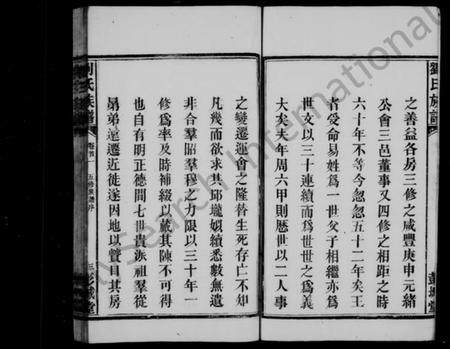 劉氏族譜
之善益各房三修之咸豐庚申元緒
公會三邑董事又四修之相距之時
六十年不等今忽忽五十二年矣王
者受命易姓爲一世父子相繼亦爲
世世以三十連續而爲世世之爲義
大矣夫年周六甲則歷世以二人事
彭城堂
之變遷運會之隆替生死存亡不知
凡幾而欲求其邱壠姻續悉數無遺
非合羣賜穆之力限以三十年一
修爲率及時補綴以蕆其陳不可得
也自有明正德間七世貴派祖羣從
昴弟遠遷近徙遂因地以管目其房
劉氏族譜
卷首
五修族譜序
彭城堂
FamilySearch International